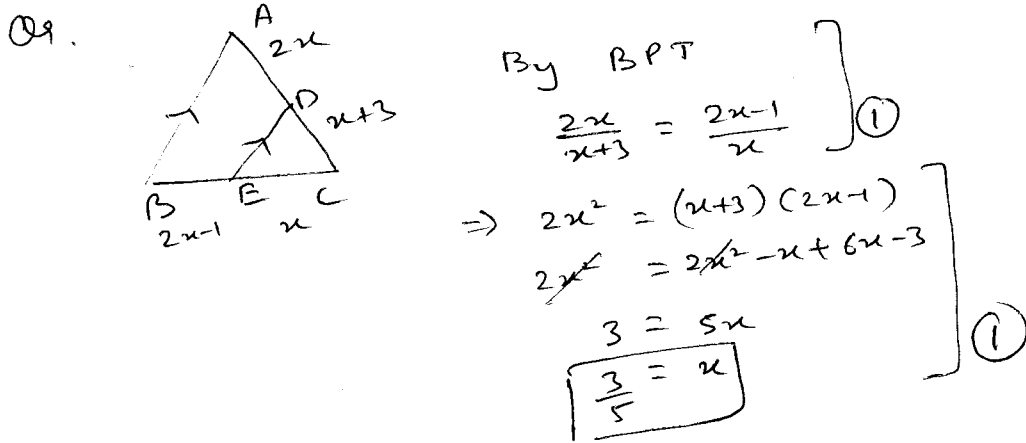 Or.
A
2x
D
x+3
B
E
C
2x-1
x
By BPT
2x/x+3 = 2x-1/x
①
⇒ 2x² = (x+3) (2x-1)
2x² = 2x² -x + 6x -3
3 = 5x
3/5 = x
①